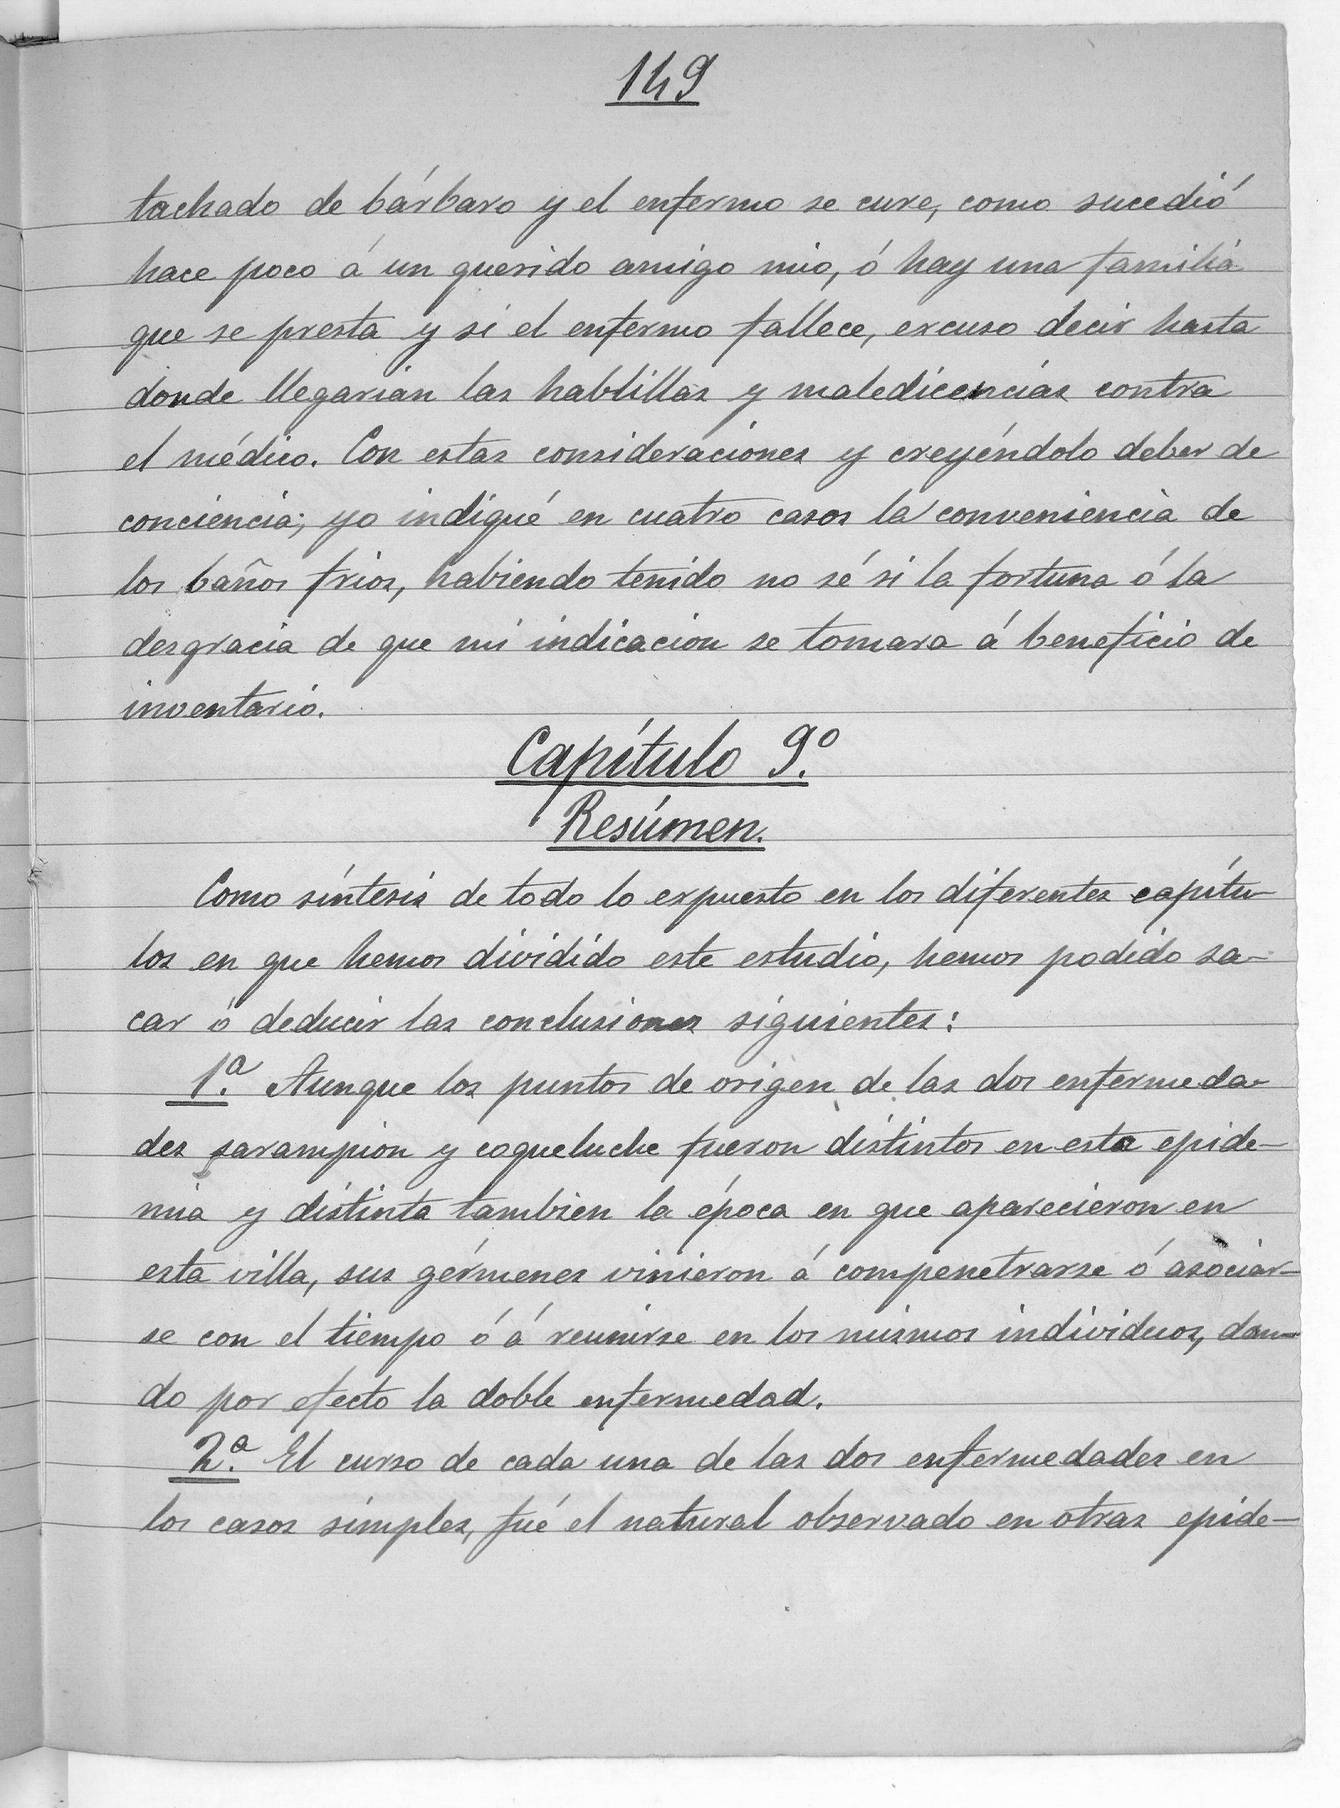 149
tachado de bárbaro y el enfermo se cure, como sucedió
hace poco á un querido amigo mio, ó hay una familia
que se presta y si el enfermo fallece, excuso decir hasta
donde llegarian las hablillas y maledicencias contra
el médico. Con estas consideraciones y creyéndolo deber de
conciencia; yo indiqué en cuatro casos la conveniencia de
los baños frios, habiendo tenido no sé si la fortuna ó la
desgracia de que mi indicacion se tomara á beneficio de
inventario.
Capítulo 9.º
Resúmen.
Como síntesis de todo lo expuesto en los diferentes capítu-
los en que hemos dividido este estudio, hemos podido sa-
car ó deducir las conclusiones siguientes:
1.ª Aunque los puntos de origen de las dos enfermeda-
des sarampion y coqueluche fueron distintos en esta epide-
mia y distinta tambien la época en que aparecieron en
esta villa, sus gérmenes vinieron á compenetrarse ó asociar-
se con el tiempo ó á reunirse en los mismos individuos, dan-
do por efecto la doble enfermedad.
2.ª El curso de cada una de las dos enfermedades en
los casos simples, fué el natural observado en otras epide-